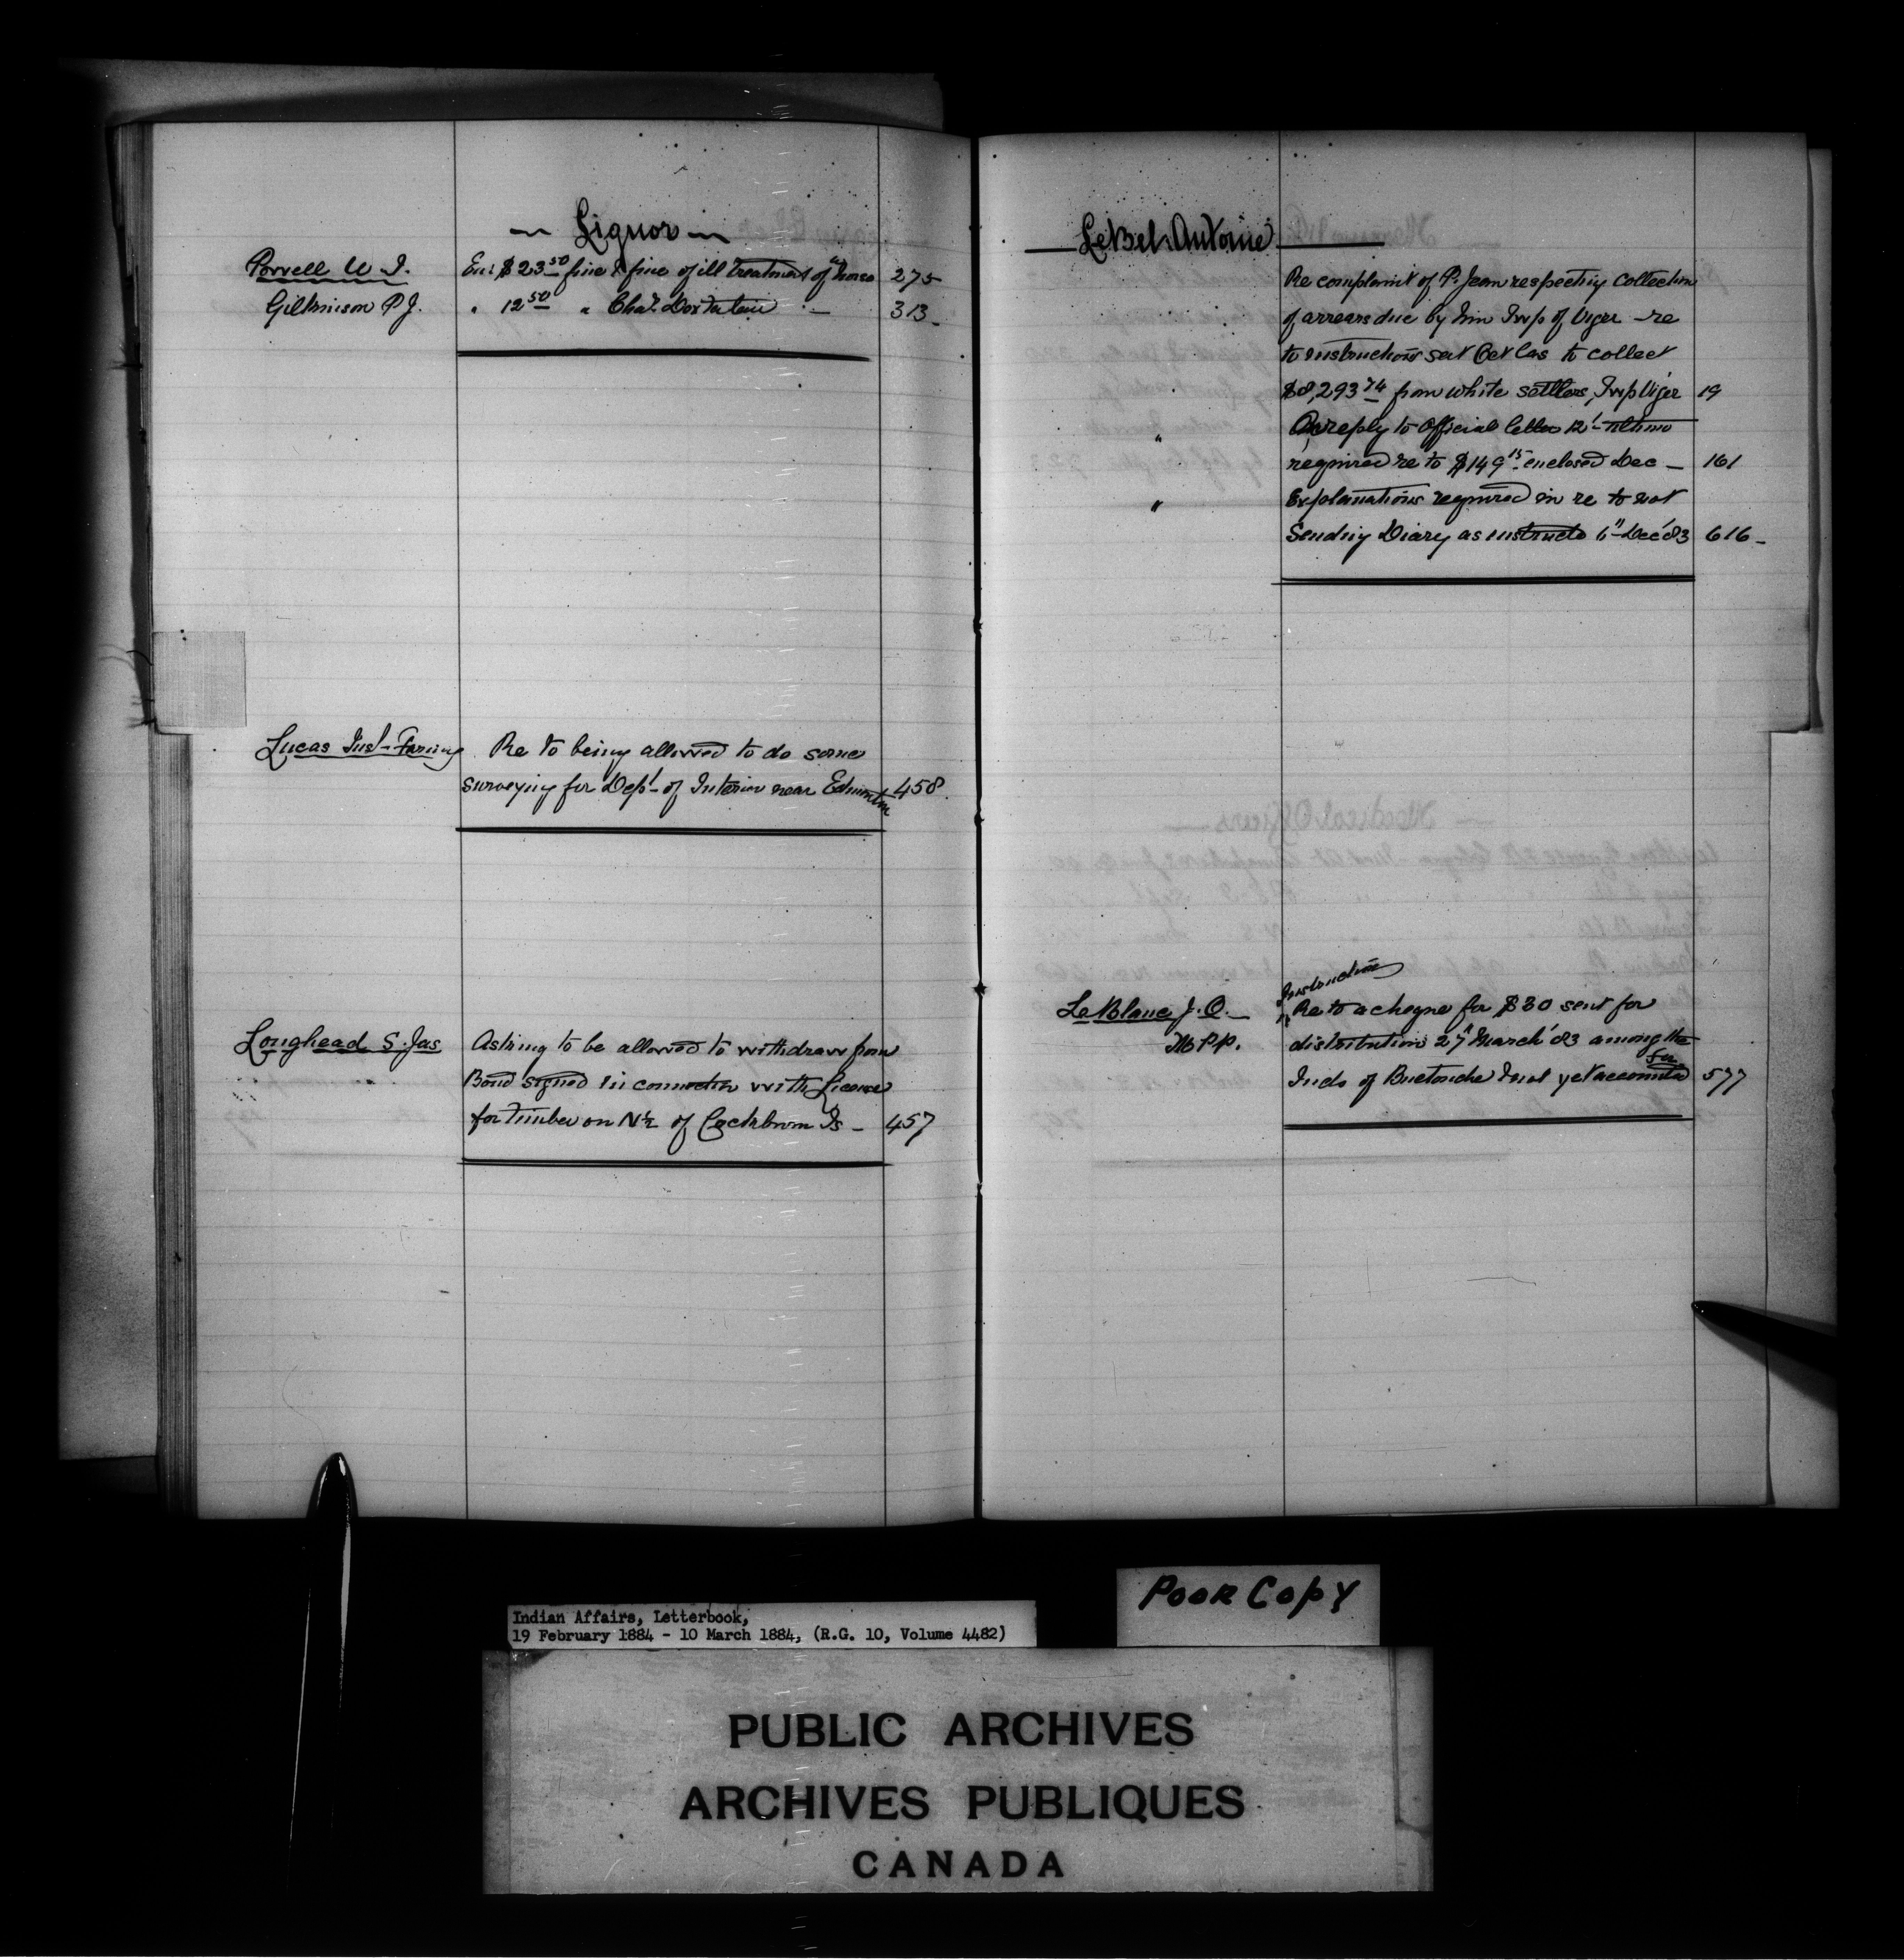 ~ Liquor ~
Powell W. J. Enc $23.50 fine & fine of ill treatment of horse 275
Gilkinson P J. " 12.50 " Chas. Doxtateur — 313
Lucas Inst. Farming Re to being allowed to do some
surveying for Dept. of Interior near Edmonton 458
Loughead S. Jas Asking to be allowed to withdraw from
Bond signed in connection with License
for timber on N½ of Cockburn Is — 457
LeBel Antoine
Re complaint of P. Jean respecting collection
of arrears due by him Twp of Viger — re
to instructions sent Oct las to collect
$8,293.74 from white settlers, Twp Viger 19
" reply to Official letter 12' ultimo
required re to $149.15 enclosed Dec — 161
" Explanations required in re to not
Sending Diary as instructd 6" Dec '83 616
LeBlanc J. O. Instructions Re to a cheque for $30 sent for
M.P.P. distribution 27" March '83 among the
Inds of Buctouche & not yet accounted for 577
Poor Copy
Indian Affairs, Letterbook,
19 February 1884 - 10 March 1884, (R.G. 10, Volume 4482)
PUBLIC ARCHIVES
ARCHIVES PUBLIQUES
CANADA